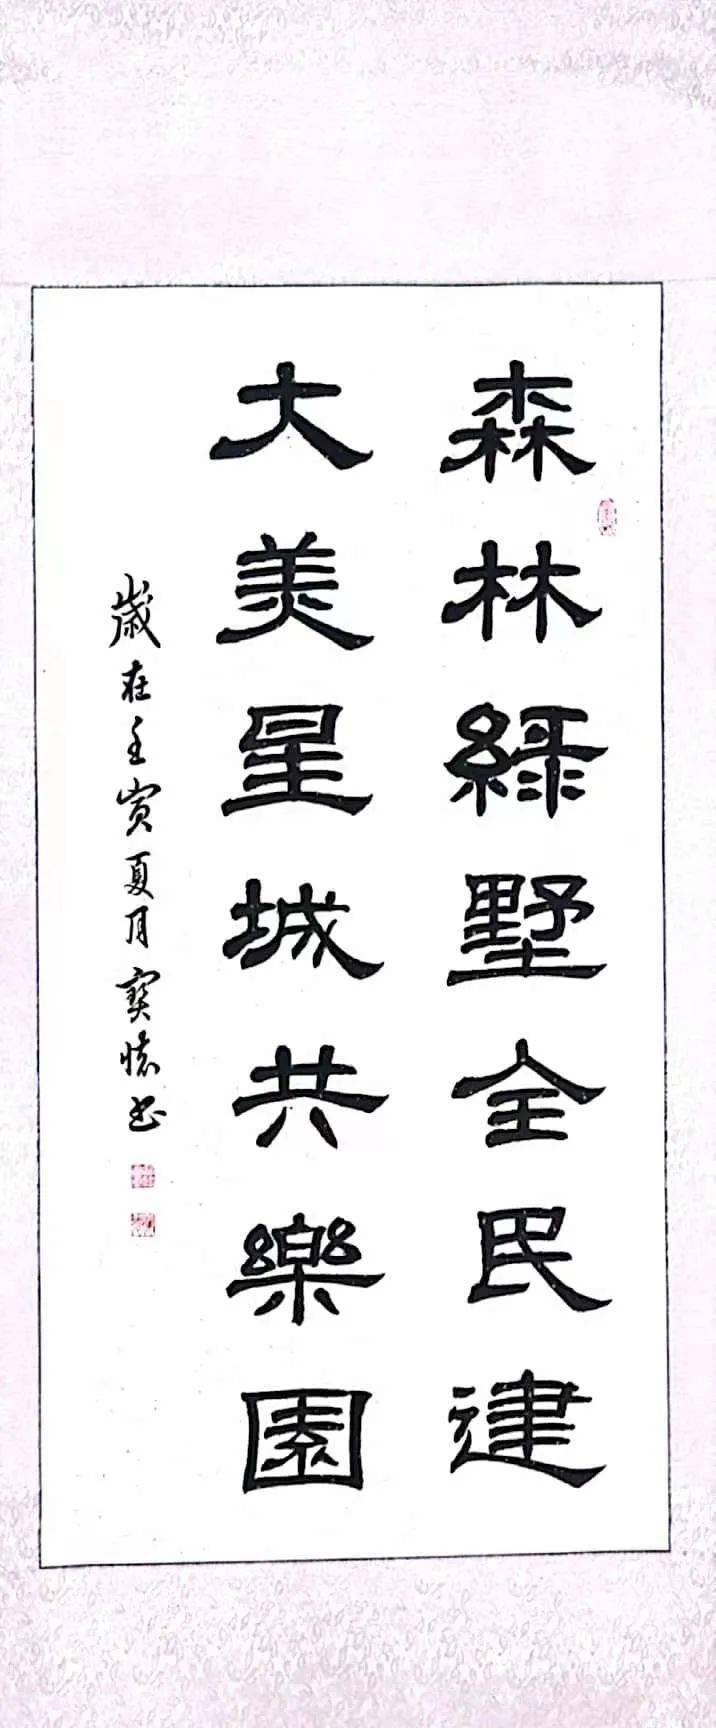 森林綠墅全民建
大美星城共樂園
歲在壬寅夏月寶懷书